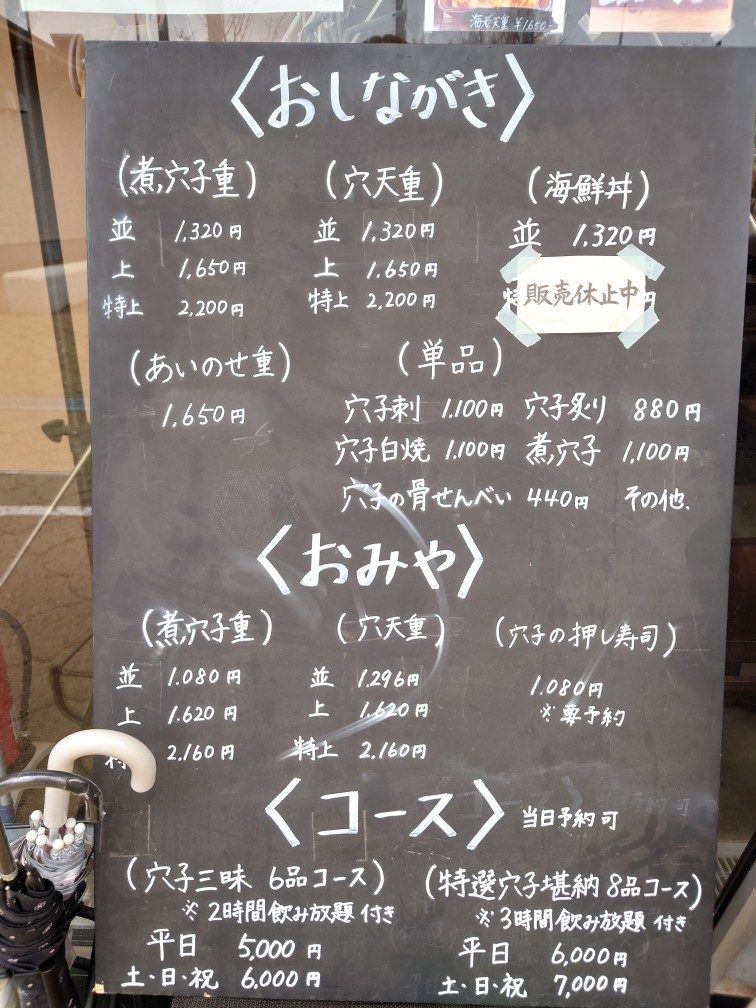 海老天重 ¥1,650-
〈おしながき〉
(煮穴子重)
並 1,320円
上 1,650円
特上 2,200円
(穴天重)
並 1,320円
上 1,650円
特上 2,200円
(海鮮丼)
並 1,320円
特 円
販売休止中
(あいのせ重)
1,650円
(単品)
穴子刺 1,100円 穴子炙り 880円
穴子白焼 1,100円 煮穴子 1,100円
穴子の骨せんべい 440円 その他.
〈おみや〉
(煮穴子重)
並 1.080円
上 1.620円
特 2.160円
(穴天重)
並 1.296円
上 1.620円
特上 2.160円
(穴子の押し寿司)
1.080円
※要予約
〈コース〉 当日予約可
(穴子三昧 6品コース)
※2時間飲み放題 付き
平日 5,000円
土・日・祝 6,000円
(特選穴子堪納 8品コース)
※3時間飲み放題 付き
平日 6,000円
土・日・祝 7,000円